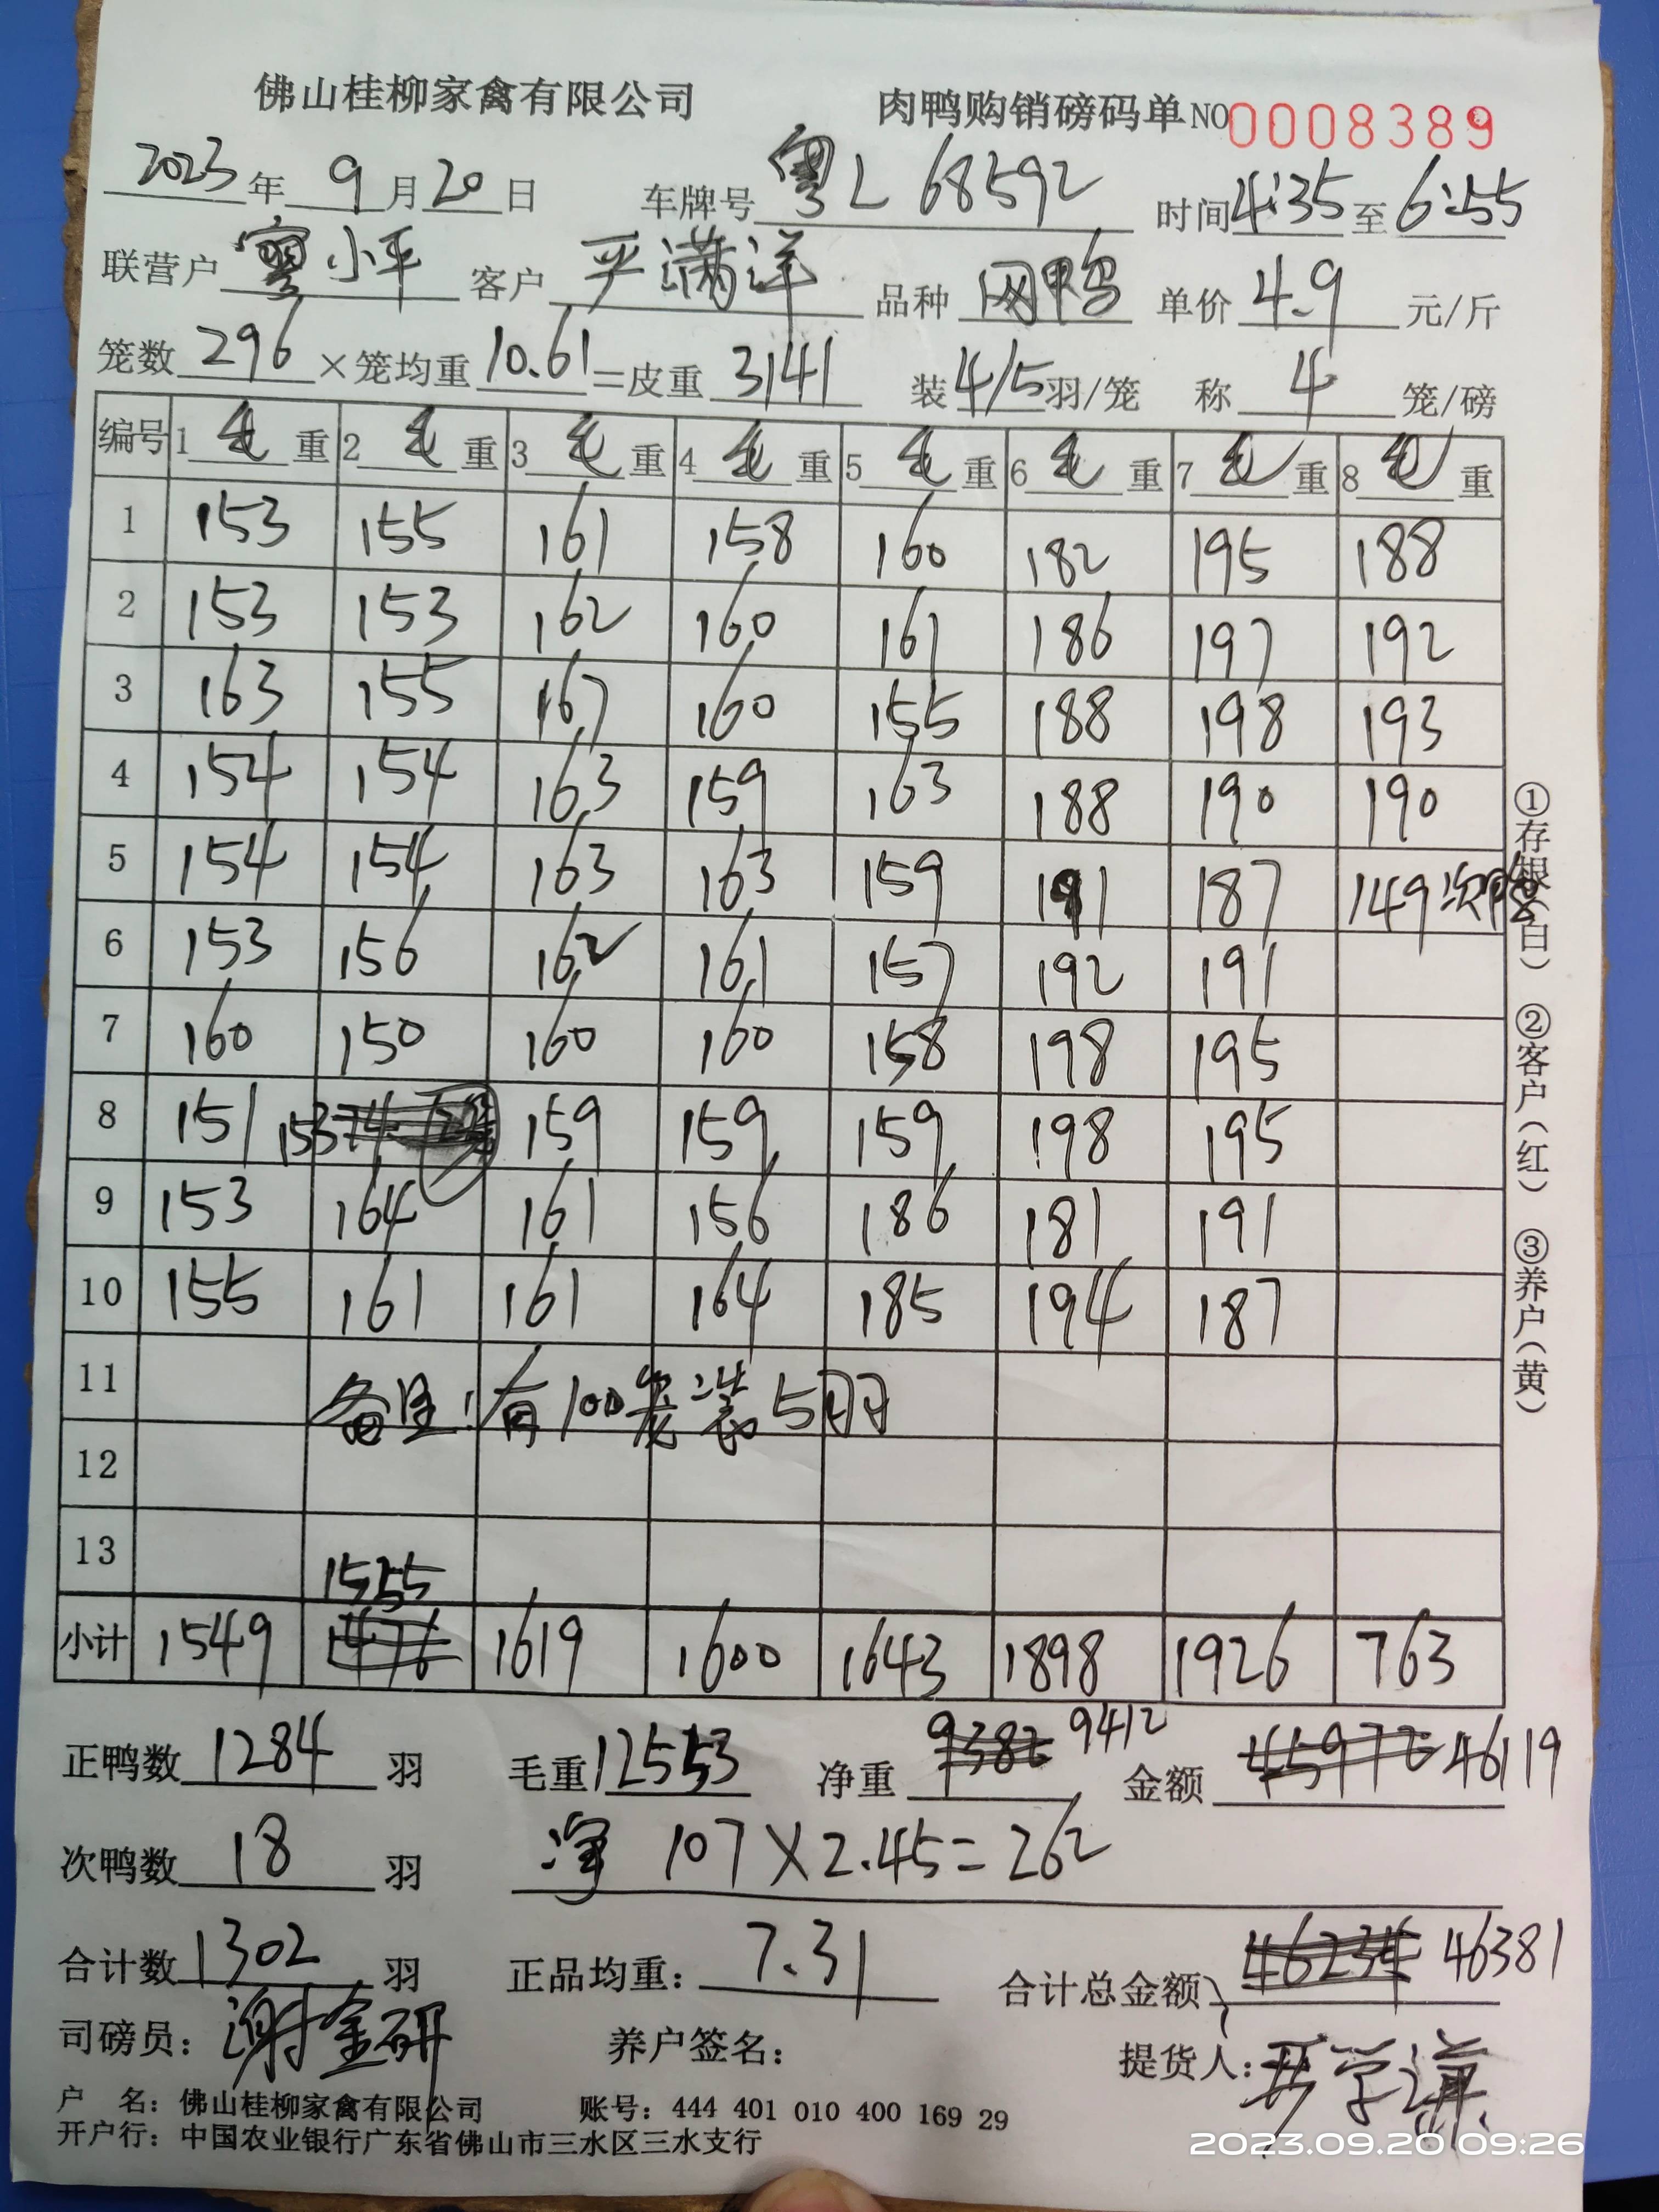 佛山桂柳家禽有限公司 肉鸭购销磅码单NO 0008389
2023年9月20日 车牌号 粤L 68592 时间4:35至6:55
联营户 小平 客户 严满洋 品种 网鸭 单价 4.9 元/斤
笼数 296 ×笼均重 10.61 =皮重 3141 装4/5羽/笼 称 4 笼/磅
编号 1毛重 2毛重 3毛重 4毛重 5毛重 6毛重 7毛重 8毛重
1 153 155 161 158 160 182 195 188
2 153 153 162 160 161 186 197 192
3 163 155 167 160 155 188 198 193
4 154 154 163 159 163 188 190 190
5 154 154 163 163 159 191 187 149次鸭
6 153 156 162 161 157 192 191
7 160 150 160 160 158 198 195
8 151 153 159 159 159 198 195
9 153 164 161 156 186 181 191
10 155 161 161 164 185 194 187
11 备注:有100笼装5羽
12
13
1555
小计 1549 1476 1619 1600 1643 1898 1926 763
①存根(白) ②客户(红) ③养户(黄)
正鸭数 1284 羽 毛重12553 净重 9382 9412 金额 45972 46119
次鸭数 18 羽 净 107×2.45=262
合计数 1302 羽 正品均重: 7.31 合计总金额 46234 46381
司磅员: 谢金研 养户签名: 提货人:
户 名: 佛山桂柳家禽有限公司 账号: 444 401 010 400 169 29
开户行: 中国农业银行广东省佛山市三水区三水支行
2023.09.20 09:26